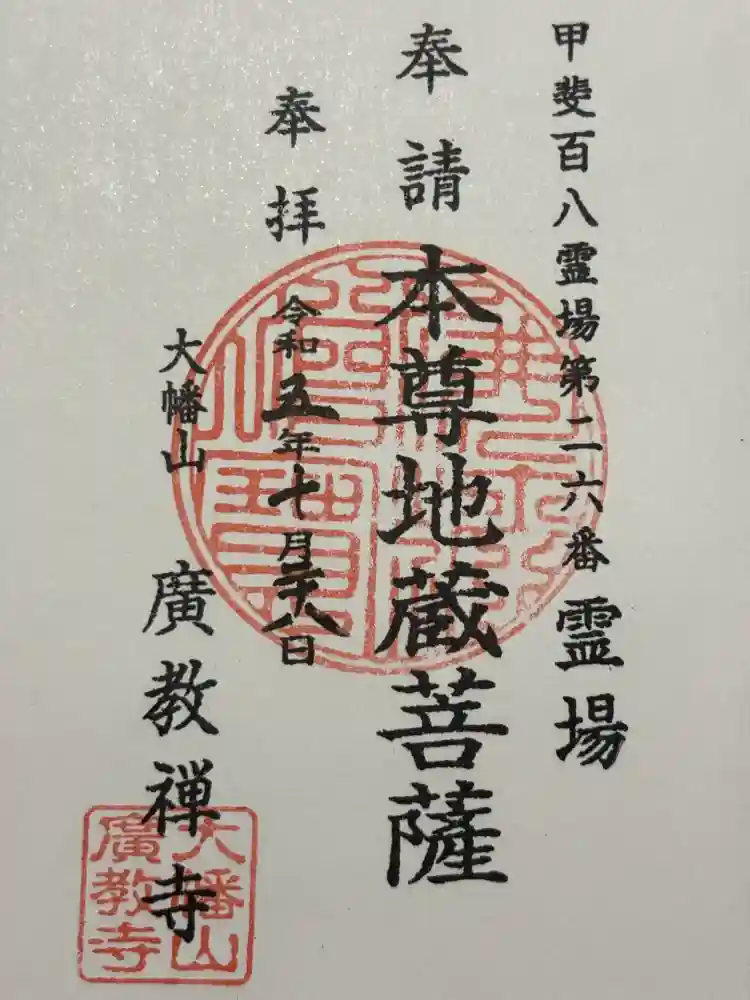 甲斐百八霊場第二六番霊場
奉請本尊地蔵菩薩
奉拝令和五年七月二十八日
大幡山
廣教禅寺
大幡山
廣教寺